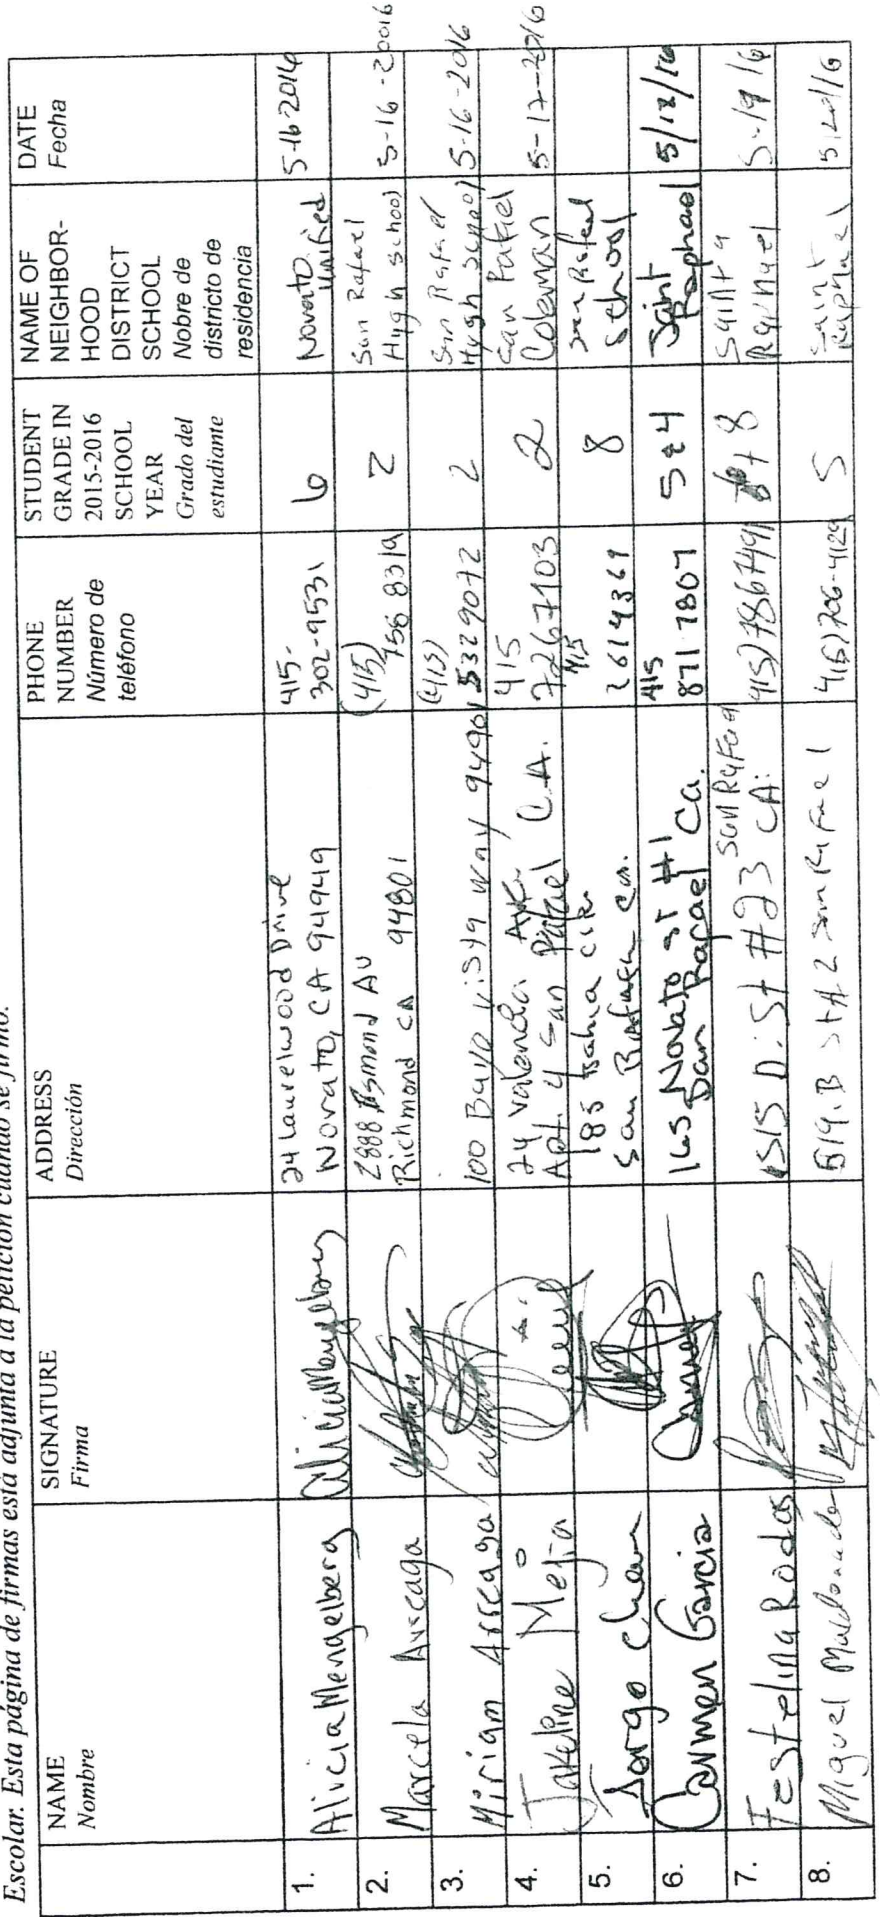 Escolar. Esta página de firmas está adjunta a la petición cuando se firmó.
NAME
Nombre
SIGNATURE
Firma
ADDRESS
Dirección
PHONE
NUMBER
Número de
teléfono
STUDENT
GRADE IN
2015-2016
SCHOOL
YEAR
Grado del
estudiante
NAME OF
NEIGHBOR-
HOOD
DISTRICT
SCHOOL
Nobre de
districto de
residencia
DATE
Fecha
1.
Alicia Mengelberg
Alicia Mengelberg
24 Laurelwood Drive
Novato, CA 94949
415-
302-9531
6
Novato
Unified
5-16-2016
2.
Marcela Arreaga
2888 Esmond AV
Richmond CA 94801
(415)
756 8319
2
San Rafael
Hygh school
5-16-20016
3.
Miriam Arreaga
100 Baya vista way 94901
(415)
5329072
2
San Rafael
Hygh school
5-16-2016
4.
Jakeline Mejia
24 Valencia Ave.
Apt. 4 San Rafael C.A.
415
7267103
2
San Rafael
Coleman
5-17-2016
5.
Jorge Chan
185 Bahia cir.
San Rafael ca.
415
2614369
8
San Rafael
School
6.
Carmen Garcia
Carmen
165 Novato st #1
San Rafael Ca.
415
871 7807
5 & 4
Saint
Raphael
5/18/16
7.
Festelina Rodas
1515 D. St #23 CA.
San Rafael
415) 7867491
8
Saint
Raphael
5-19 16
8.
Miguel Maldonado
519. B St # 2 San Rafael
4(5)706-4129
5
Saint
Raphael
5/20/16